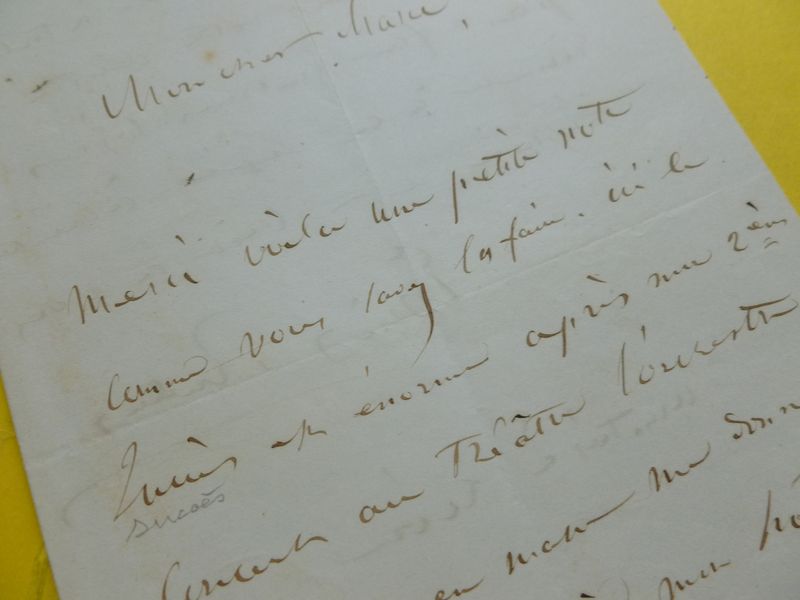 Mon cher Marie,
Merci voila une petite note
comme vous savez les faire. ici le
succès est énorme après mon 2ème
succès
Concert au Théâtre l'orchestre
en masse me donn
à mon